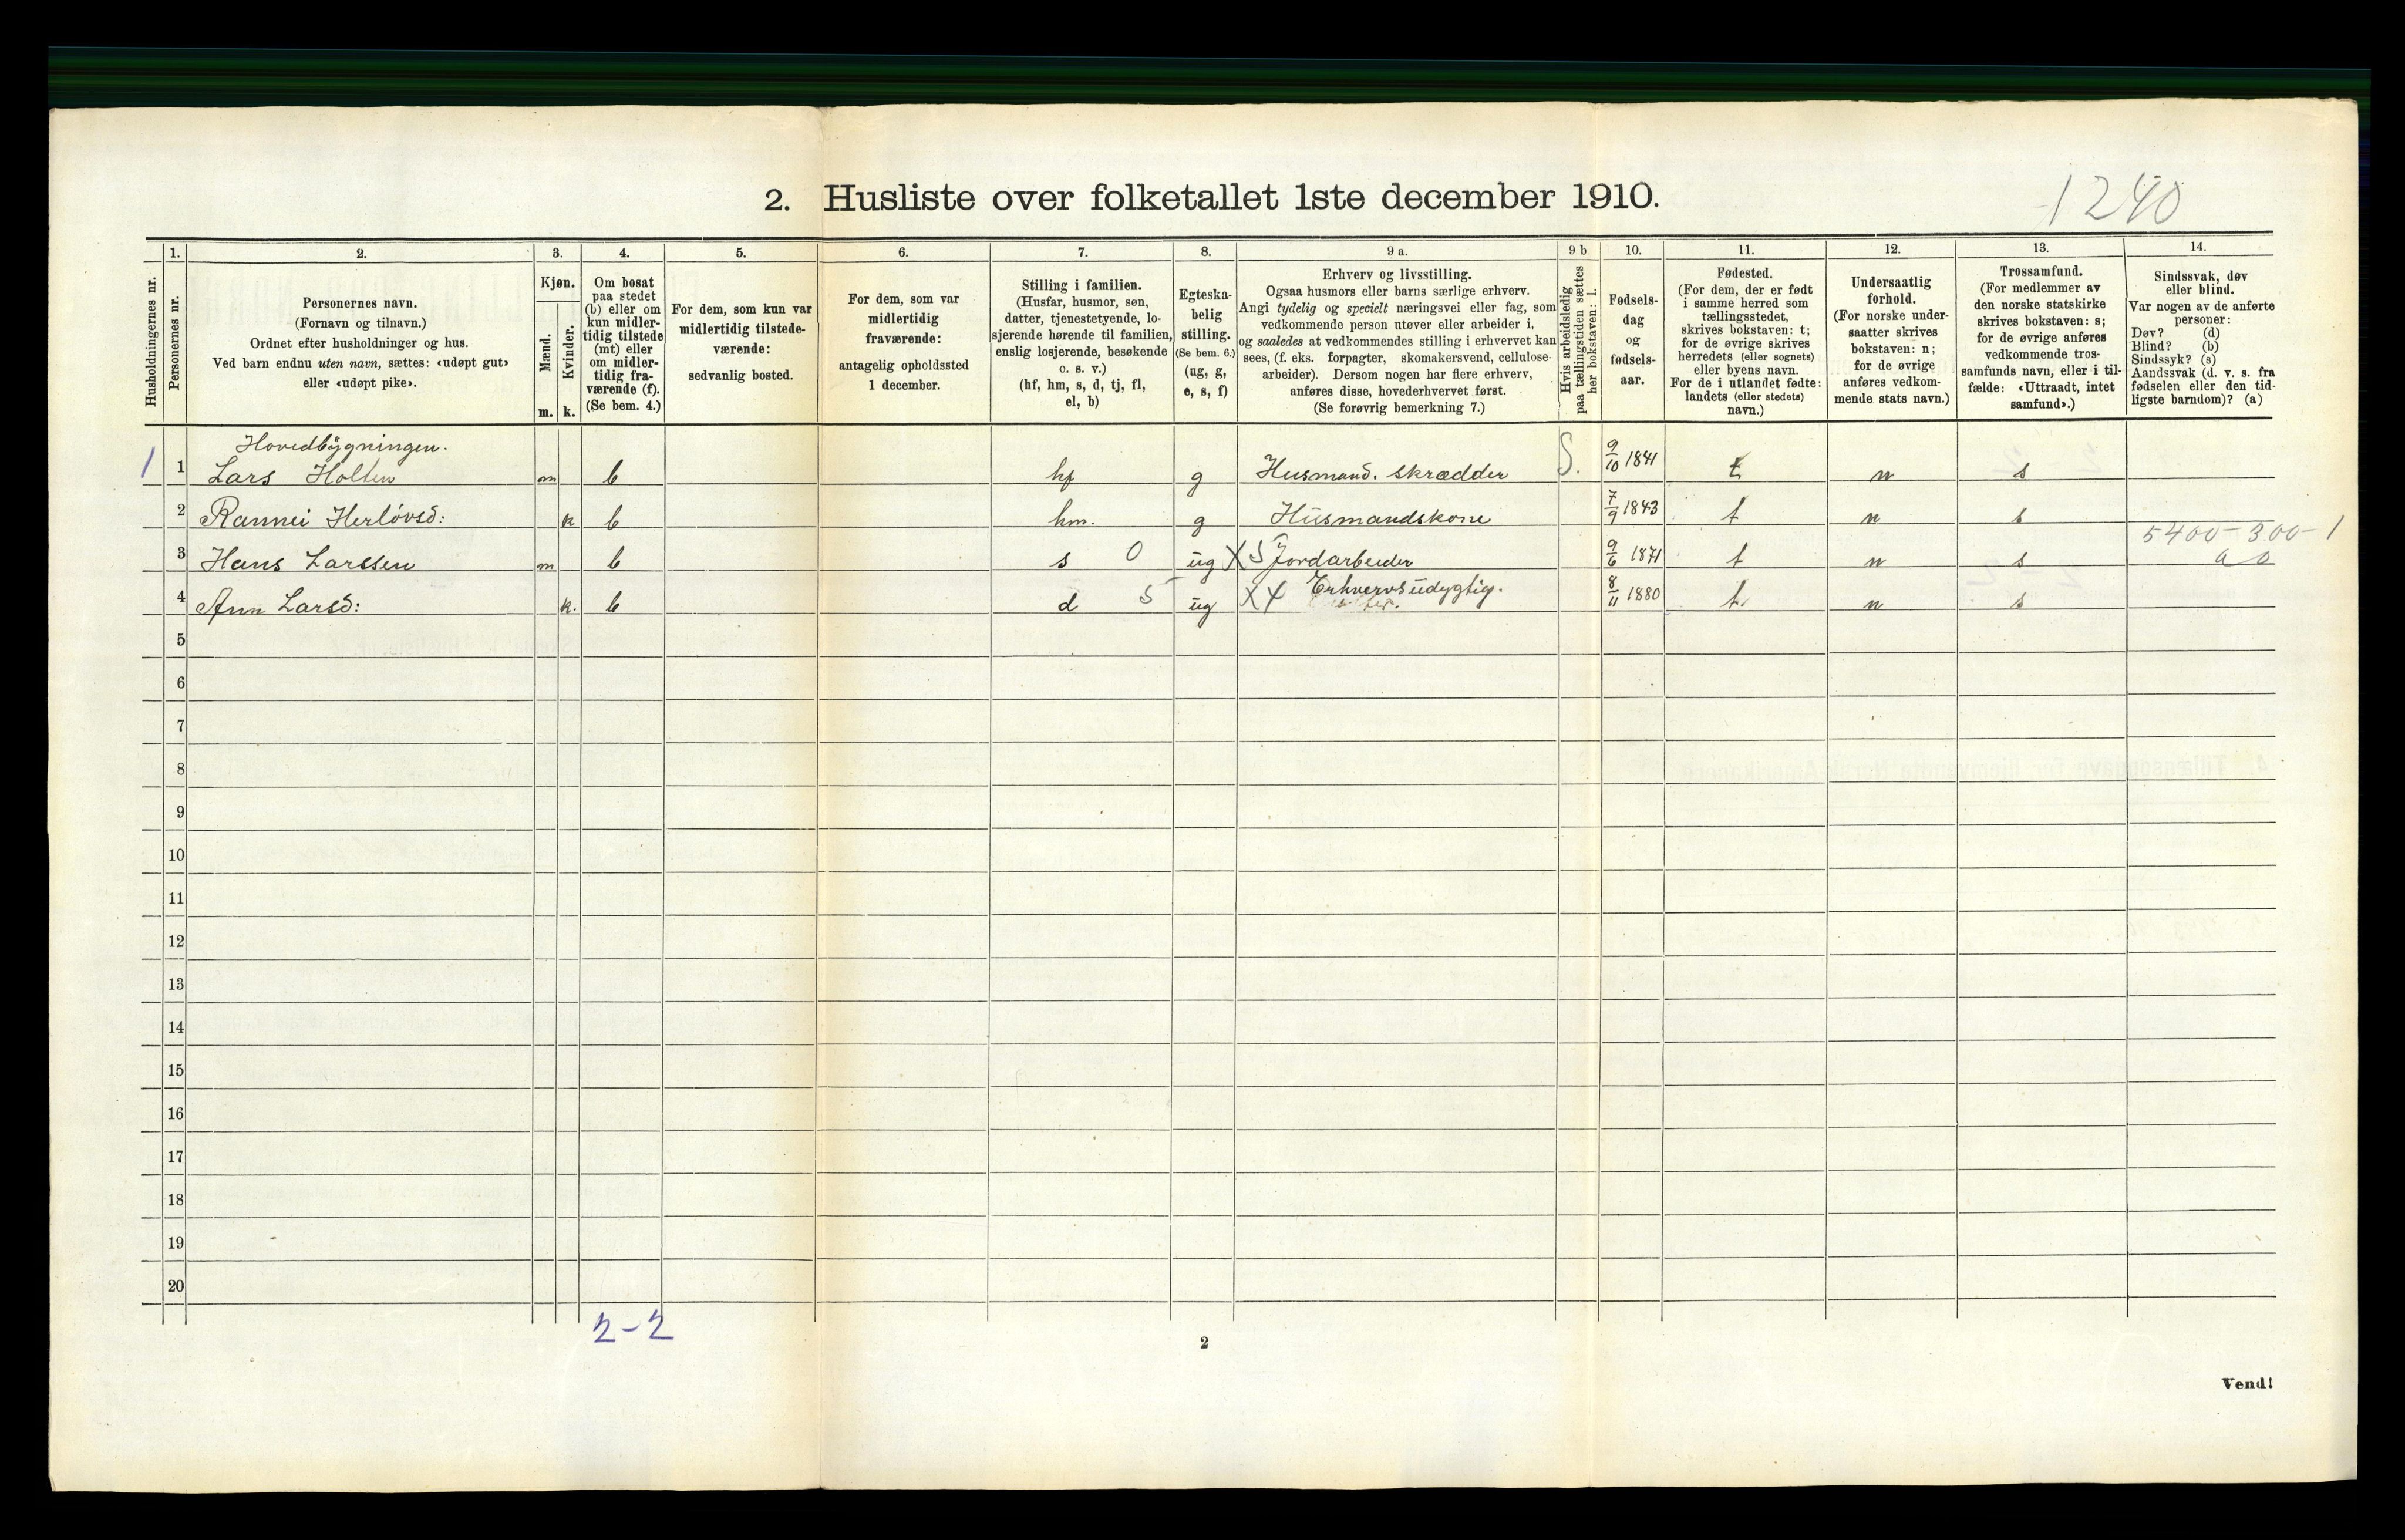 2. Husliste over folketallet 1ste december 1910.
1240
Husholdningernes nr.
1.
Personernes nr.
2.
Personernes navn.
(Fornavn og tilnavn.)
Ordnet efter husholdninger og hus.
Ved barn endnu uten navn, sættes: «udøpt gut»
eller «udøpt pike».
3.
Kjøn.
Mænd.
m.
Kvinder.
k.
4.
Om bosat
paa stedet
(b) eller om
kun midler-
tidig tilstede
(mt) eller
om midler-
tidig fra-
værende (f).
(Se bem. 4.)
5.
For dem, som kun var
midlertidig tilstede-
værende:
sedvanlig bosted.
6.
For dem, som var
midlertidig
fraværende:
antagelig opholdssted
1 december.
7.
Stilling i familien.
(Husfar, husmor, søn,
datter, tjenestetyende, lo-
sjerende hørende til familien,
enslig losjerende, besøkende
o. s. v.)
(hf, hm, s, d, tj, fl,
el, b)
8.
Egteska-
belig
stilling.
(Se bem. 6.)
(ug, g,
e, s, f)
9 a.
Erhverv og livsstilling.
Ogsaa husmors eller barns særlige erhverv.
Angi tydelig og specielt næringsvei eller fag, som
vedkommende person utøver eller arbeider i,
og saaledes at vedkommendes stilling i erhvervet kan
sees, (f. eks. forpagter, skomakersvend, cellulose-
arbeider). Dersom nogen har flere erhverv,
anføres disse, hovederhvervet først.
(Se forøvrig bemerkning 7.)
9 b
Hvis arbeidsledig
paa tællingstiden sættes
her bokstaven: l.
10.
Fødsels-
dag
og
fødsels-
aar.
11.
Fødested.
(For dem, der er født
i samme herred som
tællingsstedet,
skrives bokstaven: t;
for de øvrige skrives
herredets (eller sognets)
eller byens navn.
For de i utlandet fødte:
landets (eller stedets)
navn.)
12.
Undersaatlig
forhold.
(For norske under-
saatter skrives
bokstaven: n;
for de øvrige
anføres vedkom-
mende stats navn.)
13.
Trossamfund.
(For medlemmer av
den norske statskirke
skrives bokstaven: s;
for de øvrige anføres
vedkommende tros-
samfunds navn, eller i til-
fælde: «Uttraadt, intet
samfund».)
14.
Sindssvak, døv
eller blind.
Var nogen av de anførte
personer:
Døv? (d)
Blind? (b)
Sindssyk? (s)
Aandssvak (d. v. s. fra
fødselen eller den tid-
ligste barndom)? (a)
Hovedbygningen.
1 1 Lars Holten m b hf g Husmand. skrædder S. 9/10 1841 t n s
2 Rannei Herlövsd: k b hm. g Husmandskone 7/9 1843 t n s
5400-300-1
3 Hans Larssen m b s 0 ug X 5 Jordarbeider 9/6 1871 t n s a o
4 Ann Larsd: k. b d 5 ug XX Erhvervsudygtig. 8/11 1880 t. n s
5
6
7
8
9
10
11
12
13
14
15
16
17
18
19
20
2-2
2
Vend!